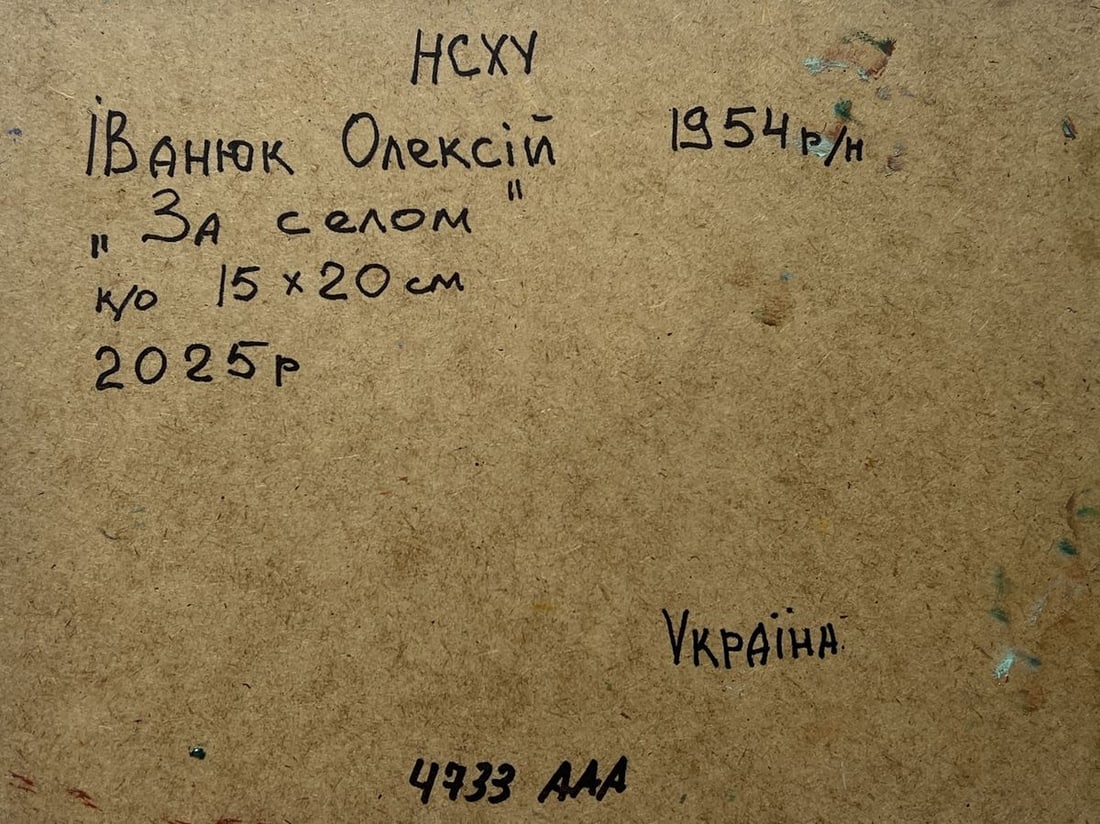 НСХУ
Іванюк Олексій 1954 р/н
„За селом"
к/о 15 х 20 см
2025 р
Україна
4733 ААА